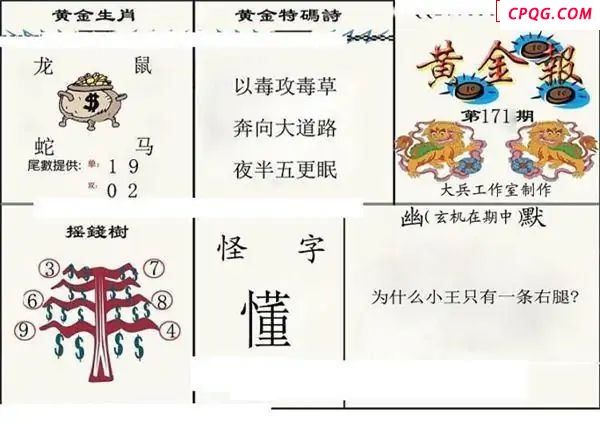 CPQG.COM
黄金生肖
龙 鼠
$
蛇 马
尾數提供: 单: 1 9
双: 0 2
黄金特碼詩
以毒攻毒草
奔向大道路
夜半五更眠
黄金報
第171期
大兵工作室制作
摇錢樹
③ ⑦
⑥ ⑧
⑨ ④
$ $ $ $
怪 字
懂
幽(玄机在期中)默
为什么小王只有一条右腿?